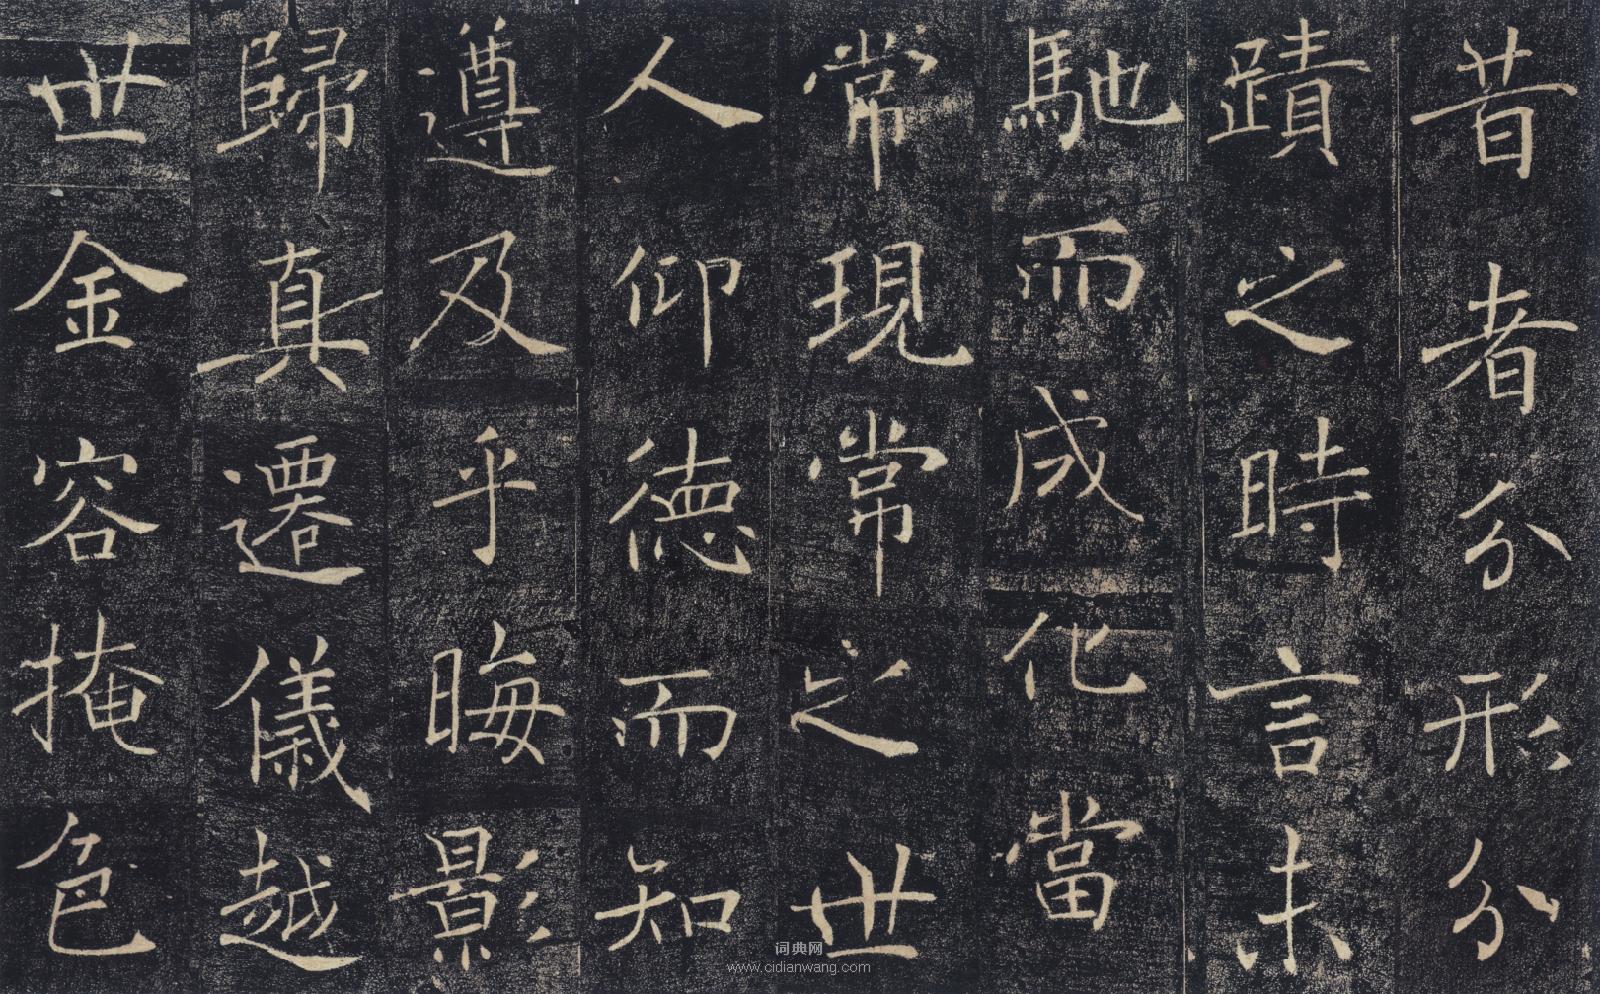 昔者分形分
蹟之時言未
馳而成化當
常現常之世
人仰德而知
遵及乎晦影
歸真遷儀越
世金容掩色
词典网
www.cidianwang.com